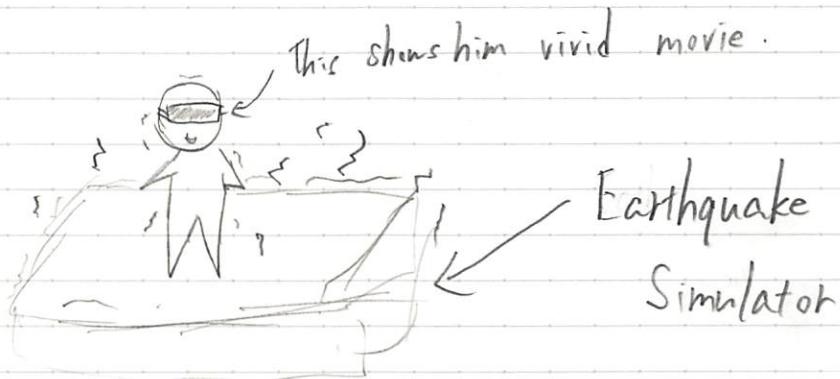 This shows him vivid movie.
Earthquake
Simulator